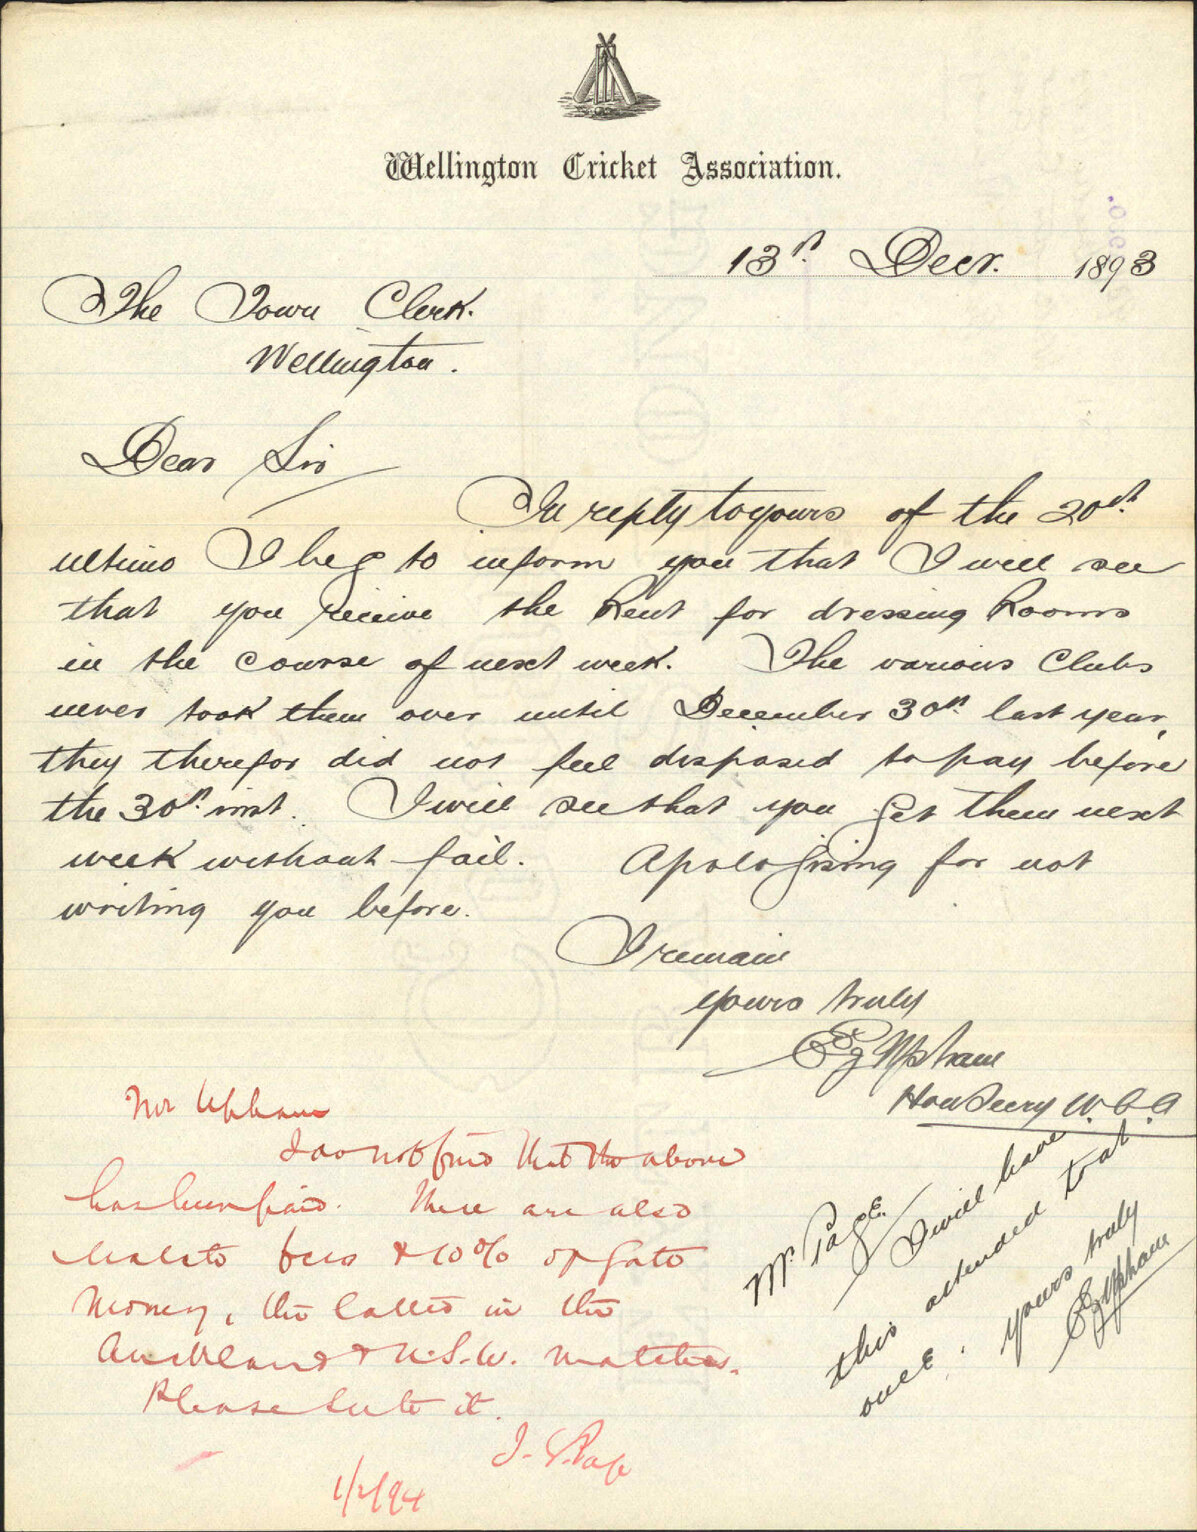 Wellington Cricket Association.
13th Decr. 1893
The Town Clerk.
Wellington.
Dear Sir
In reply to yours of the 20th
ultimo I beg to inform you that I will see
that you receive the Rent for dressing Rooms
in the course of next week. The various Clubs
never took them over until December 30th last year,
they therefor did not feel disposed to pay before
the 30th inst. I will see that you get them next
week without fail. Apologising for not
writing you before.
I remain
yours truly
Upham
Hon Secry W.C.A
Mr Upham
I do not find that the above
has been paid. There are also
fees & 10% of gate
Money, the latter in the
Auckland & N.S.W. matches.
Please see to it.
J. Page
1/2/94
Mr. Page
I will have
this attended to at
once.
yours truly
Upham